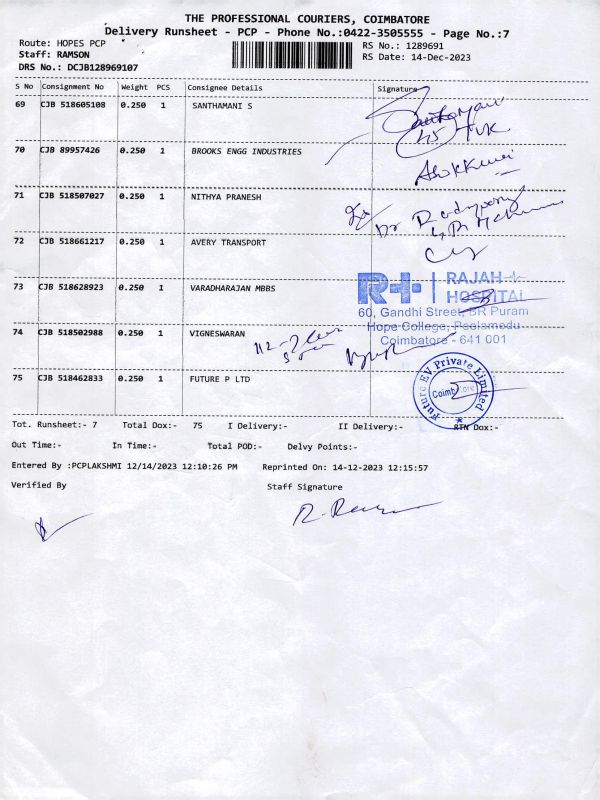 THE PROFESSIONAL COURIERS, COIMBATORE
Delivery Runsheet - PCP - Phone No.:0422-3505555 - Page No.:7
Route: HOPES PCP
Staff: RAMSON
DRS No.: DCJB128969107
RS No.: 1289691
RS Date: 14-Dec-2023
S No Consignment No Weight PCS Consignee Details Signature
69 CJB 518605108 0.250 1 SANTHAMANI S
70 CJB 89957426 0.250 1 BROOKS ENGG INDUSTRIES
Ashok Kumar
71 CJB 518507027 0.250 1 NITHYA PRANESH
72 CJB 518661217 0.250 1 AVERY TRANSPORT
73 CJB 518628923 0.250 1 VARADHARAJAN MBBS
R+ RAJAH HOSPITAL
60, Gandhi Street, BR Puram
Hope College, Peelamedu
Coimbatore - 641 001
74 CJB 518502988 0.250 1 VIGNESWARAN
75 CJB 518462833 0.250 1 FUTURE P LTD
Future EV Private Limited
Coimbatore
Tot. Runsheet:- 7 Total Dox:- 75 I Delivery:- II Delivery:- RTN Dox:-
Out Time:- In Time:- Total POD:- Delvy Points:-
Entered By :PCPLAKSHMI 12/14/2023 12:10:26 PM Reprinted On: 14-12-2023 12:15:57
Verified By Staff Signature